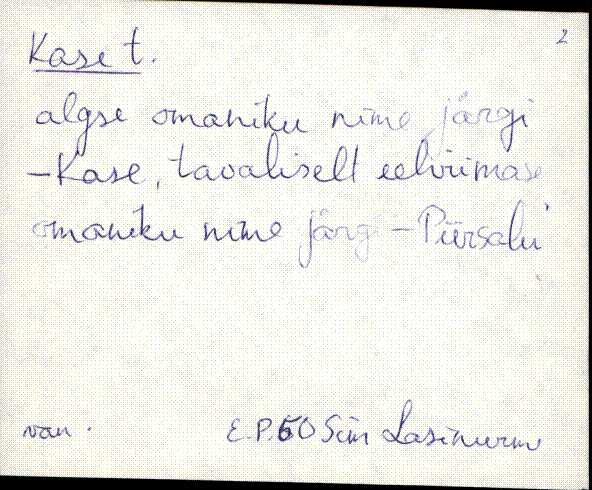 2
Kase t.
algse omaniku nime järgi
– Kase, tavaliselt eelviimase
omaniku nime järgi – Piirsalu
van.
E.P. 50 Sim Lasinurme